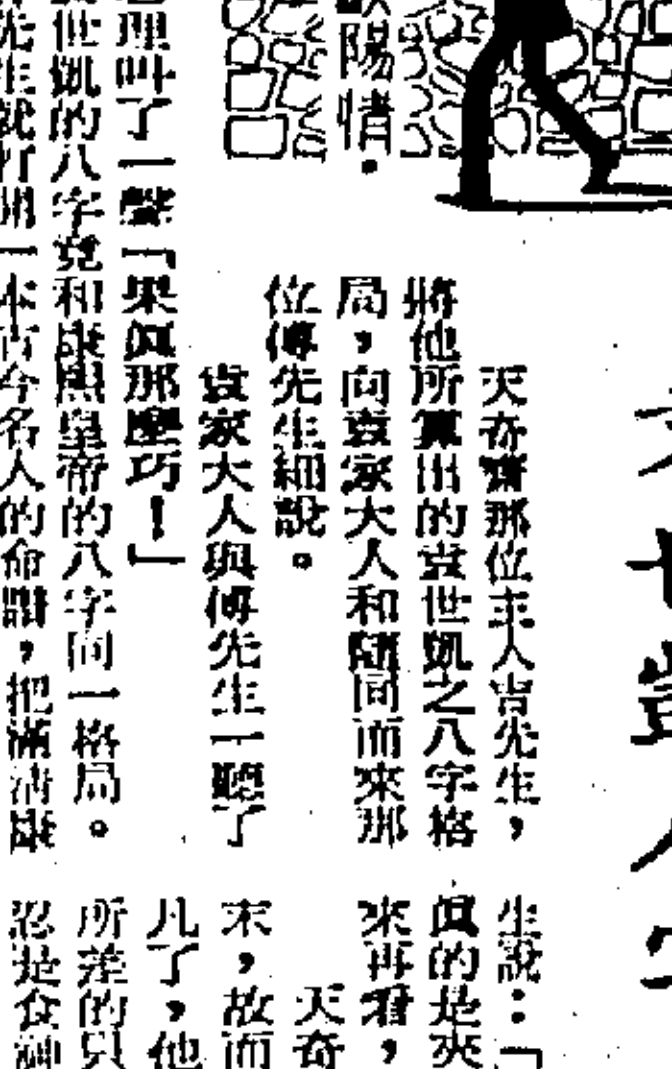 歐陽情·
天奇齋那位主人吉先生，
將他所算出的袁世凱之八字格
局，向袁家大人和隨同而來那
位傅先生細說。
袁家大人與傅先生一聽了
理叫了一聲「果真那麼巧！」
世凱的八字竟和康熙皇帝的八字同一格局。
先生就打開一本古今名人的命譜，把滿清康
生說：「
真的是夾
來再看，
天奇
末，故而
凡了，他
所差的只
忍是食神